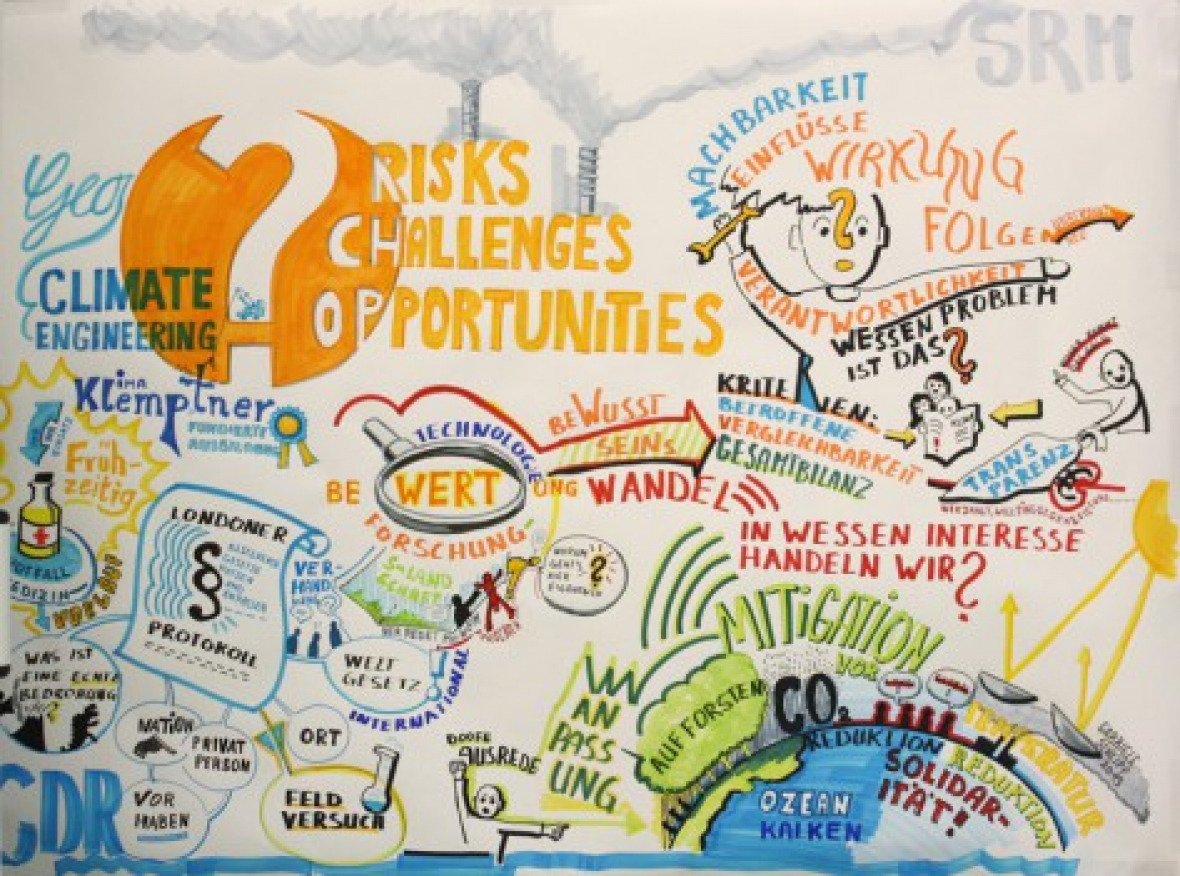 SRM
Geo
CLIMATE
ENGINEERING
RISKS
CHALLENGES
OPPORTUNITIES
MACHBARKEIT
EINFLÜSSE
WIRKUNG
FOLGEN
VERANTWORTLICHKEIT
WESSEN PROBLEM
IST DAS?
Klima
Klemptner
FUNDIERTE
AUSBILDUNG
Früh-
zeitig
TECHNOLOGIE
BE WERT UNG
FORSCHUNG
BEWUSST
SEINS
WANDEL
KRITERIEN:
BETROFFENE
VERGLEICHBARKEIT
GESAMTBILANZ
TRANS
PARENZ
IN WESSEN INTERESSE
HANDELN WIR?
LONDONER
§
PROTOKOLL
VER-
HAND
WELT
GESETZ
INTERNATIONAL
NOTFALL
MEDIZIN
WAS IST
EINE ECHTE
BEDROHUNG
?
NATION
PRIVAT
PERSON
ORT
VOR
HABEN
FELD
VERSUCH
CDR
DOOFE
AUSREDE
AN
PASS
UNG
MITIGATION
VOR
AUFFORSTEN
CO2
REDUKTION
SOLIDAR-
ITÄT!
TEMPERATUR
REDUKTION
OZEAN
KALKEN